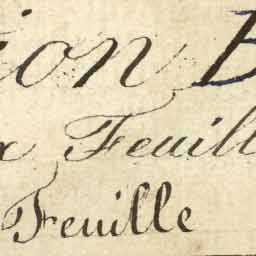 ion B
x Feuill
Feuille